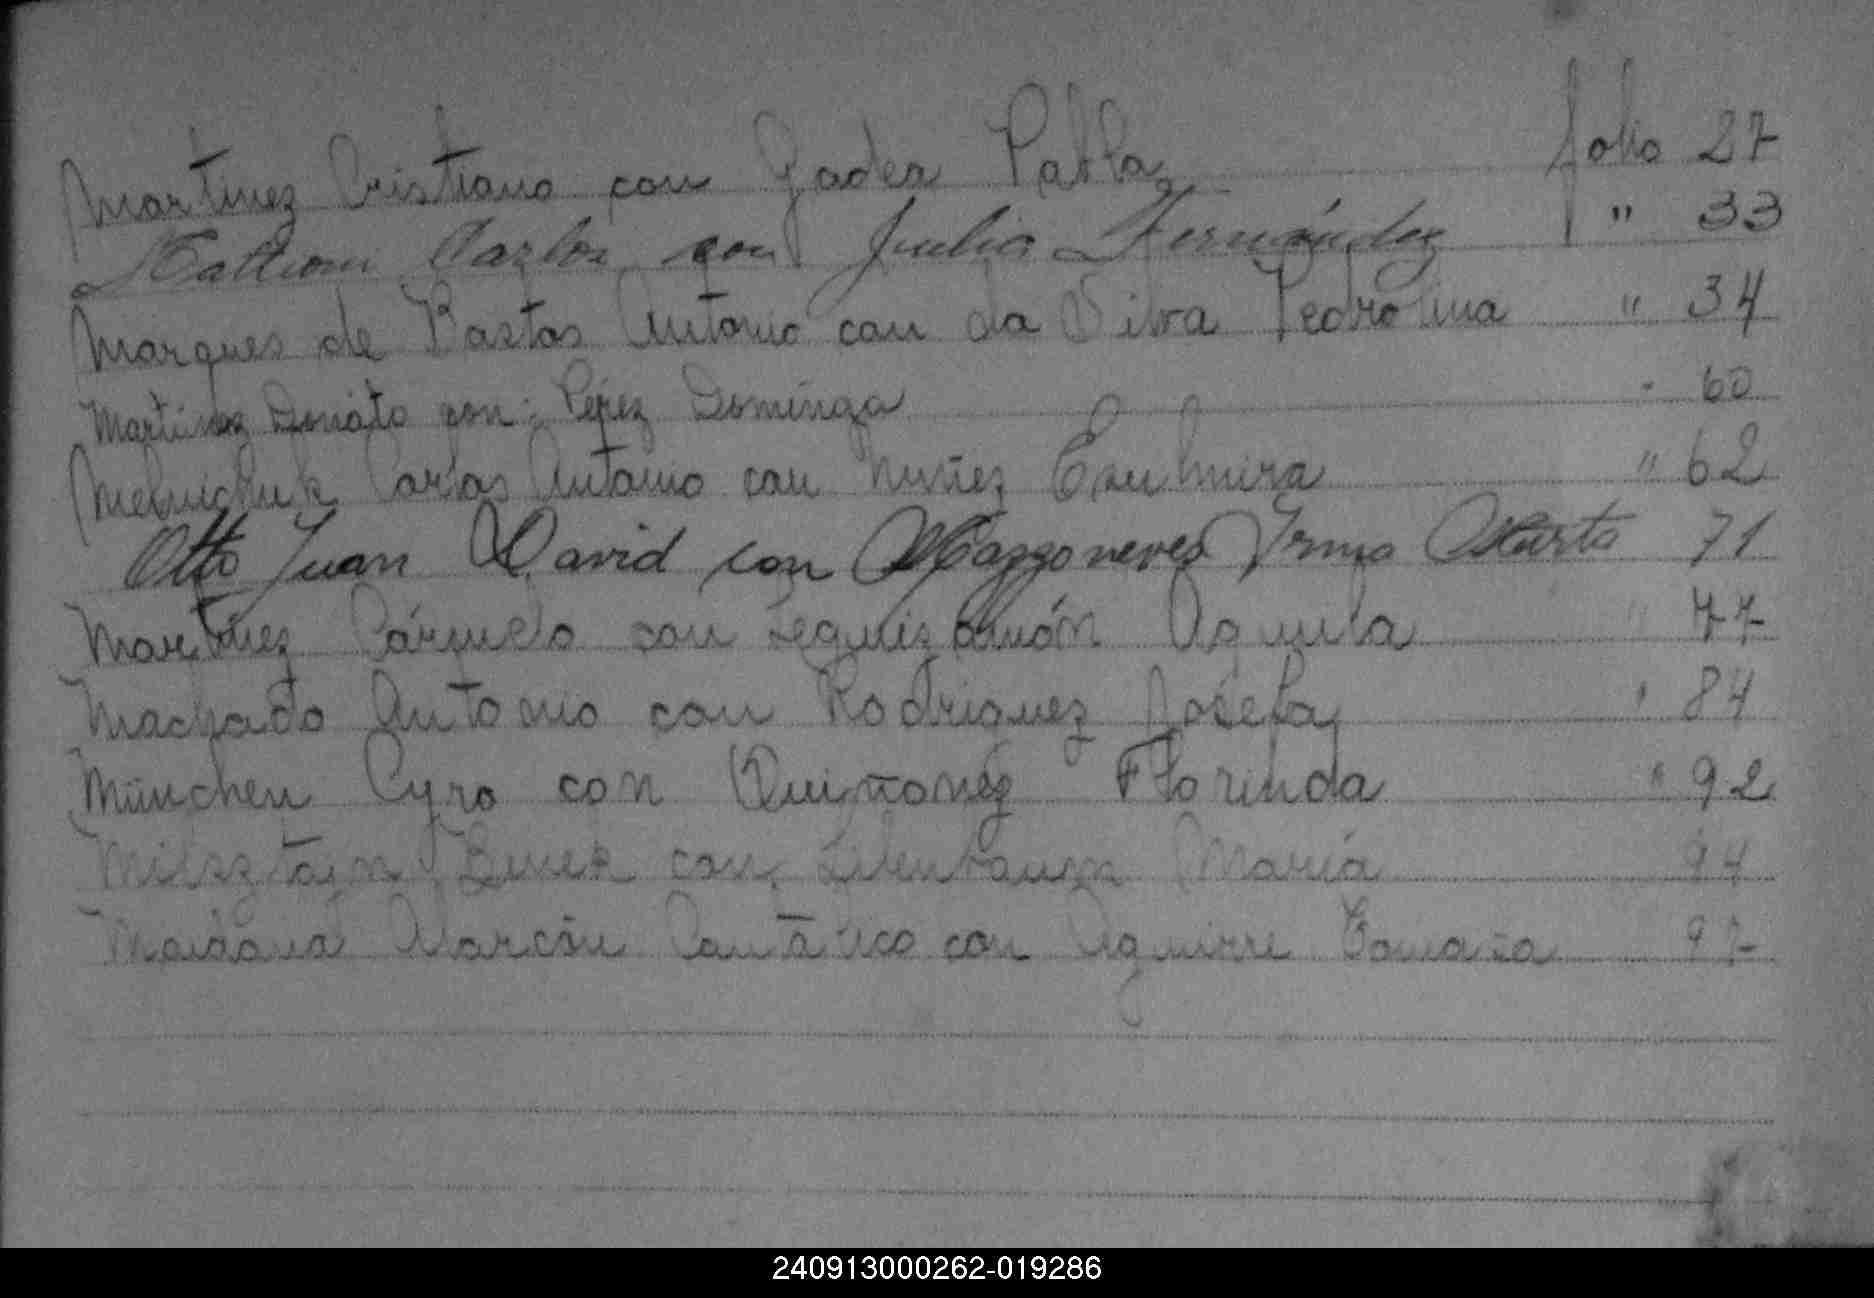 Martinez Cristiano con Gader Pabla folio 27
Mattioni Carlos con Julia Fernández " 33
Marques de Bastos Antonio con da Silva Pedrolina " 34
Martinez Donato con: Pérez Dominga " 60
Melnichuk Carlos Antonio con Nuñez Exulmira " 62
Otto Juan David con Mazzoneves Irma Marta 71
Martinez Cármelo con Leguizamón Aquila " 77
Machado Antonio con Rodriguez Josefa " 84
München Cyro con Quiñonez Florinda " 92
Milsztain con María 94
Maidana Alarcón con Aguirre Tomasa 97
240913000262-019286